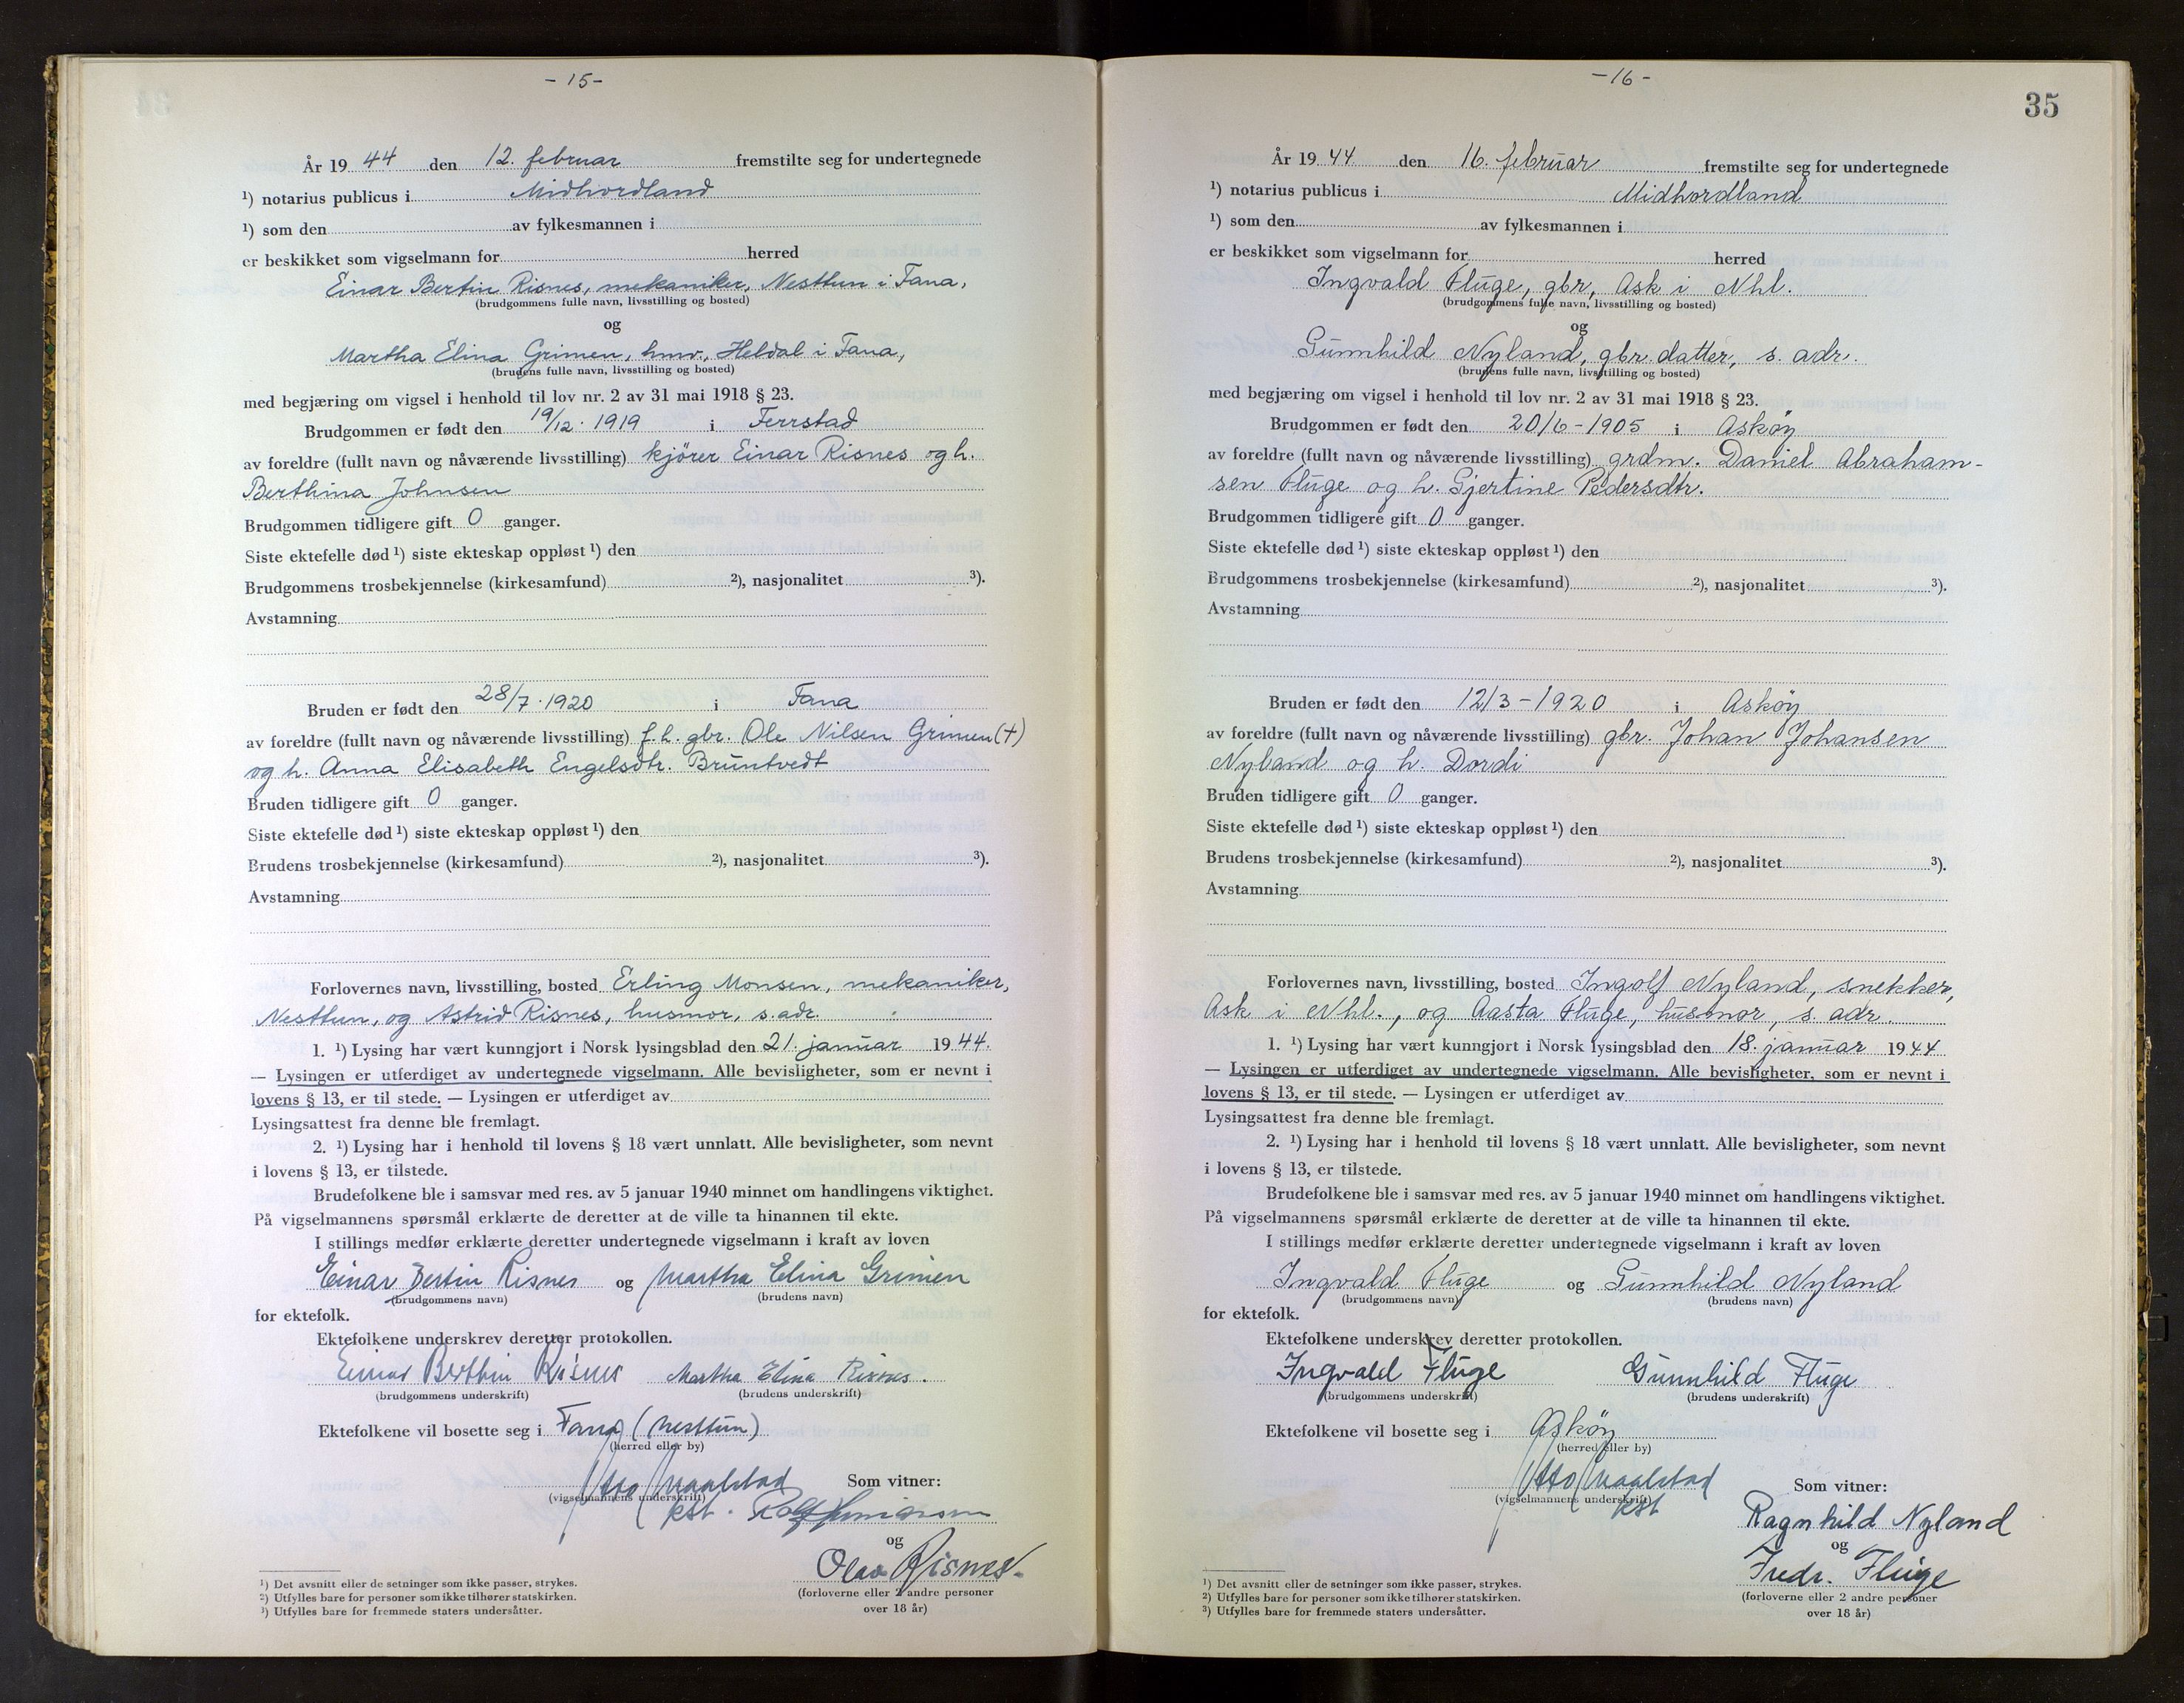 - 15 -
År 19 44 den 12. februar fremstilte seg for undertegnede
¹) notarius publicus i Midhordland
¹) som den av fylkesmannen i
er beskikket som vigselmann for herred
Einar Bertin Risnes, mekaniker, Nesttun i Fana,
(brudgommens fulle navn, livsstilling og bosted)
og
Martha Elina Grimen, hmv., Heldal i Fana,
(brudens fulle navn, livsstilling og bosted)
med begjæring om vigsel i henhold til lov nr. 2 av 31 mai 1918 § 23.
Brudgommen er født den 19/12. 1919 i Ferrstad
av foreldre (fullt navn og nåværende livsstilling) kjörer Einar Risnes og h.
Berthina Johnsen
Brudgommen tidligere gift 0 ganger.
Siste ektefelle død ¹) siste ekteskap oppløst ¹) den
Brudgommens trosbekjennelse (kirkesamfund) ²), nasjonalitet ³).
Avstamning
Bruden er født den 28/7. 1920 i Fana
av foreldre (fullt navn og nåværende livsstilling) f.h. gbr. Ole Nilsen Grimen (+)
og h. Anna Elisabeth Engelsdtr. Bruntvedt
Bruden tidligere gift 0 ganger.
Siste ektefelle død ¹) siste ekteskap oppløst ¹) den
Brudens trosbekjennelse (kirkesamfund) ²), nasjonalitet ³).
Avstamning
Forlovernes navn, livsstilling, bosted Erling Monsen, mekaniker,
Nesttun, og Astrid Risnes, husmor, s. adr.
1. ¹) Lysing har vært kunngjort i Norsk lysingsblad den 21. januar 19 44.
— Lysingen er utferdiget av undertegnede vigselmann. Alle bevisligheter, som er nevnt i
lovens § 13, er til stede. — Lysingen er utferdiget av
Lysingsattest fra denne ble fremlagt.
2. ¹) Lysing har i henhold til lovens § 18 vært unnlatt. Alle bevisligheter, som nevnt
i lovens § 13, er tilstede.
Brudefolkene ble i samsvar med res. av 5 januar 1940 minnet om handlingens viktighet.
På vigselmannens spørsmål erklærte de deretter at de ville ta hinannen til ekte.
I stillings medfør erklærte deretter undertegnede vigselmann i kraft av loven
Einar Bertin Risnes og Martha Elina Grimen
(brudgommens navn) (brudens navn)
for ektefolk.
Ektefolkene underskrev deretter protokollen.
Einar Berthin Risnes Martha Elina Risnes.
(brudgommens underskrift) (brudens underskrift)
Ektefolkene vil bosette seg i Fana (Nesttun)
(herred eller by)
Otto Maalstad Som vitner:
(vigselmannens underskrift)
kst. Rolf
og
Olav Risnes.
(forloverne eller 2 andre personer
over 18 år)
¹) Det avsnitt eller de setninger som ikke passer, strykes.
²) Utfylles bare for personer som ikke tilhører statskirken.
³) Utfylles bare for fremmede staters undersåtter.
- 16 -
35
År 19 44 den 16. februar fremstilte seg for undertegnede
¹) notarius publicus i Midhordland
¹) som den av fylkesmannen i
er beskikket som vigselmann for herred
Ingvald Fluge, gbr, Ask i Nhl.
(brudgommens fulle navn, livsstilling og bosted)
og
Gunnhild Nyland, gbr. datter, s. adr.
(brudens fulle navn, livsstilling og bosted)
med begjæring om vigsel i henhold til lov nr. 2 av 31 mai 1918 § 23.
Brudgommen er født den 20/6 - 1905 i Asköy
av foreldre (fullt navn og nåværende livsstilling) grdm. Daniel Abraham-
sen Fluge og h. Gjertine Pedersdtr.
Brudgommen tidligere gift 0 ganger.
Siste ektefelle død ¹) siste ekteskap oppløst ¹) den
Brudgommens trosbekjennelse (kirkesamfund) ²), nasjonalitet ³).
Avstamning
Bruden er født den 12/3 - 1920 i Asköy
av foreldre (fullt navn og nåværende livsstilling) gbr. Johan Johansen
Nyland og h. Dordi
Bruden tidligere gift 0 ganger.
Siste ektefelle død ¹) siste ekteskap oppløst ¹) den
Brudens trosbekjennelse (kirkesamfund) ²), nasjonalitet ³).
Avstamning
Forlovernes navn, livsstilling, bosted Ingolf Nyland, snekker,
Ask i Nhl., og Aasta Fluge, husmor, s. adr.
1. ¹) Lysing har vært kunngjort i Norsk lysingsblad den 18. januar 19 44
— Lysingen er utferdiget av undertegnede vigselmann. Alle bevisligheter, som er nevnt i
lovens § 13, er til stede. — Lysingen er utferdiget av
Lysingsattest fra denne ble fremlagt.
2. ¹) Lysing har i henhold til lovens § 18 vært unnlatt. Alle bevisligheter, som nevnt
i lovens § 13, er tilstede.
Brudefolkene ble i samsvar med res. av 5 januar 1940 minnet om handlingens viktighet.
På vigselmannens spørsmål erklærte de deretter at de ville ta hinannen til ekte.
I stillings medfør erklærte deretter undertegnede vigselmann i kraft av loven
Ingvald Fluge og Gunnhild Nyland
(brudgommens navn) (brudens navn)
for ektefolk.
Ektefolkene underskrev deretter protokollen.
Ingvald Fluge Gunnhild Fluge
(brudgommens underskrift) (brudens underskrift)
Ektefolkene vil bosette seg i Asköy
(herred eller by)
Otto Maalstad Som vitner:
(vigselmannens underskrift)
kst
Ragnhild Nyland
og
Fredr. Fluge
(forloverne eller 2 andre personer
over 18 år)
¹) Det avsnitt eller de setninger som ikke passer, strykes.
²) Utfylles bare for personer som ikke tilhører statskirken.
³) Utfylles bare for fremmede staters undersåtter.